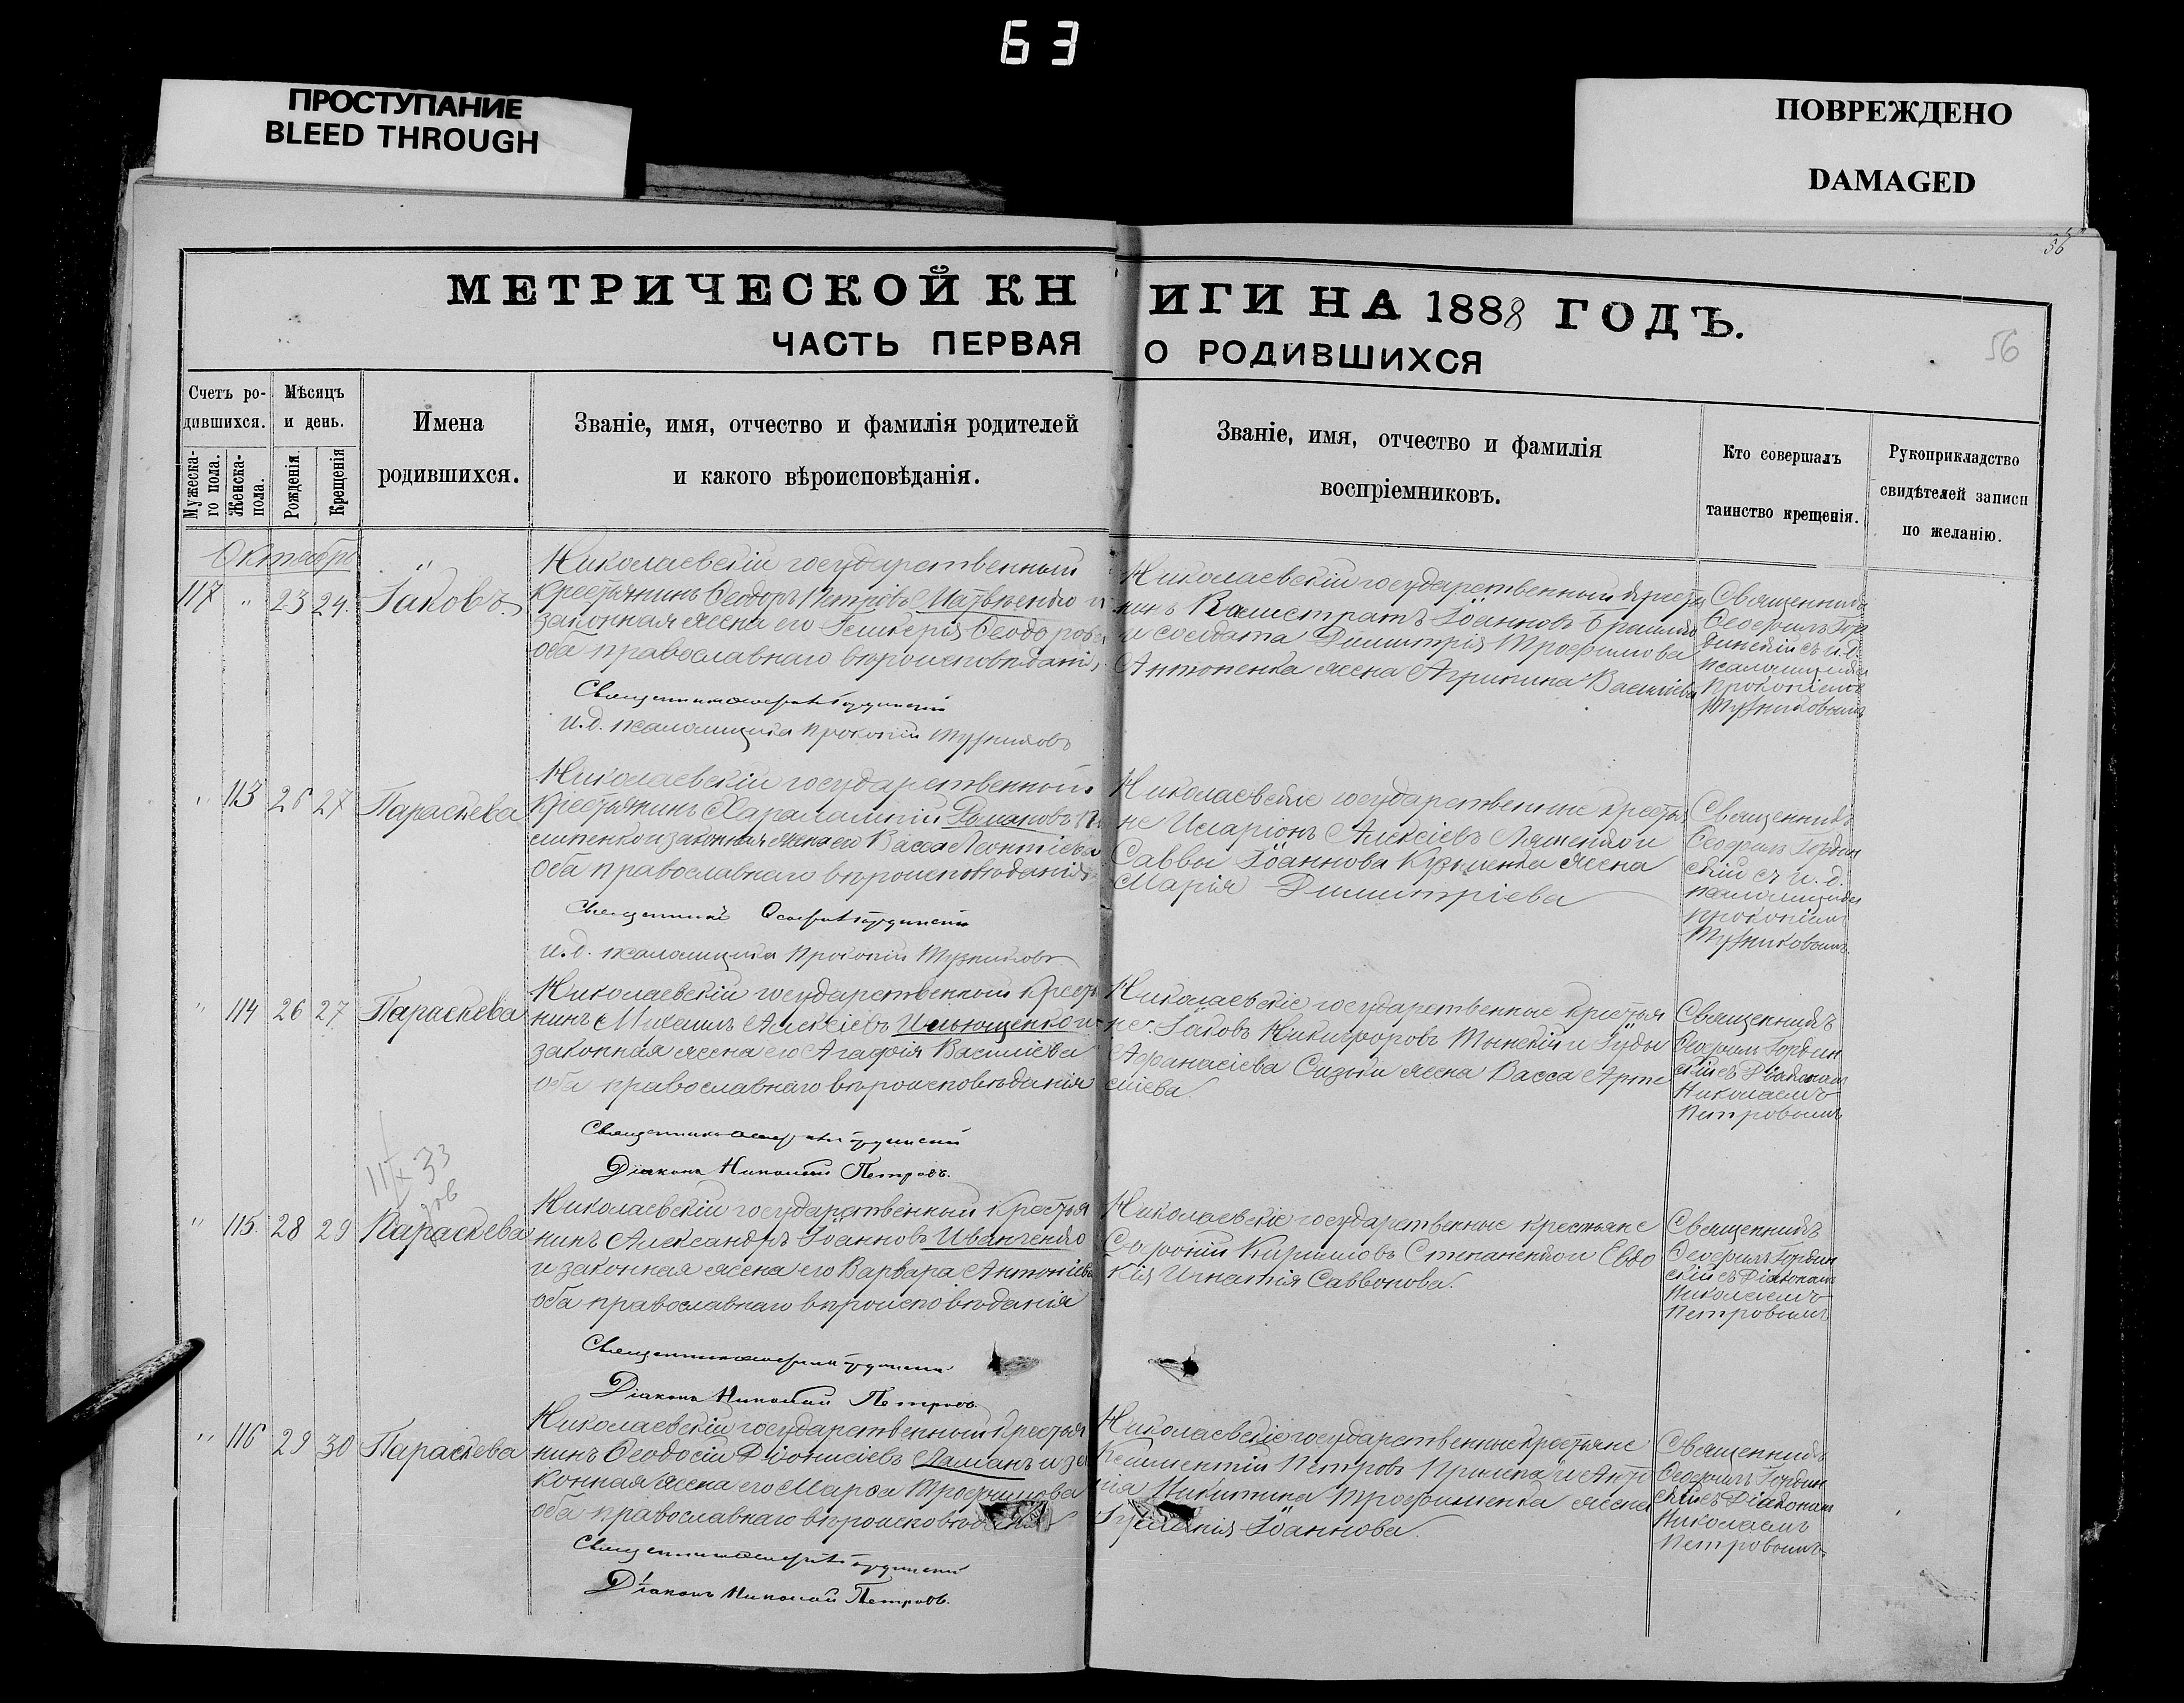 63
ПРОСТУПАНИЕ
BLEED THROUGH
ПОВРЕЖДЕНО
DAMAGED
36
56
МЕТРИЧЕСКОЙ КНИГИ НА 1888 ГОДЪ.
ЧАСТЬ ПЕРВАЯ О РОДИВШИХСЯ
Счетъ ро-
дившихся.
Мужеска-
го пола.
Женска-
пола.
Мѣсяцъ
и день.
Рожденія.
Крещенія
Имена
родившихся.
Званіе, имя, отчество и фамилія родителей
и какого вѣроисповѣданія.
Званіе, имя, отчество и фамилія
воспріемниковъ.
Кто совершалъ
таинство крещенія.
Рукоприкладство
свидѣтелей записи
по желанію.
Октябрь
117 " 23 24. Іаковъ
Николаевскій государственный
крестьянинъ Ѳеодоръ Петровъ и
законная жена его
оба православнаго вѣроисповѣданія
Священникъ
И.д. псаломщика Прокопій
Николаевскій государственный
Іоанновъ
и солдата Димитрія Трофимова
Антоненка жена Агрипина Василіева
Священникъ
Ѳеофилъ
съ и.д.
псаломщика
Прокопіемъ
" 113 26 27 Параскева
Николаевскій государственный
крестьянинъ Харалампій Романовъ
и законная жена его Васса Леонтіева
оба православнаго вѣроисповѣданія
Священникъ
И.д. псаломщика Прокопій
Николаевскіе государственные крестья
не Иларіонъ Алексіевъ Ляшенко и
Саввы Іоаннова Кузменка жена
Марія Димитріева
Священникъ
Ѳеофилъ Гордин
скій съ и.д.
псаломщика
Прокопіемъ
" 114 26 27 Параскева
Николаевскій государственный крестья
нинъ Михаилъ Алексіевъ Ильющенко и
законная жена его Агафія Василіева
оба православнаго вѣроисповѣданія
Священникъ
Діаконъ Николай Петровъ.
Николаевскіе государственные крестья
не: Іаковъ Никифоровъ Тынскій и Іуды
Афанасіева жена Васса Арте
міева.
Священникъ
Ѳеофилъ Гордин
скій съ Діакономъ
Николаемъ
Петровымъ
" 115. 28 29 Параскева
Николаевскій государственный крестья
нинъ Александръ Іоанновъ Иванченко
и законная жена его Варвара Антоніева
оба православнаго вѣроисповѣданія
Священникъ
Діаконъ Николай Петровъ.
Николаевскіе государственные крестьяне
Софоній Кириловъ Степаненко и Евдо
кія Игнатія Саввонова.
Священникъ
Ѳеофилъ Гордин
скій съ Діакономъ
Николаемъ
Петровымъ
" 116 29 30 Параскева
Николаевскій государственный крестья
нинъ Ѳеодосій Діонисіевъ и за
конная жена его Марѳа Трофимова
оба православнаго вѣроисповѣданія
Священникъ
Діаконъ Николай Петровъ.
Николаевскіе государственные крестьяне
Климентій Петровъ и
Никитина Трофименка жена
Іоаннова.
Священникъ
Ѳеофилъ Гордин
скій съ Діакономъ
Николаемъ
Петровымъ